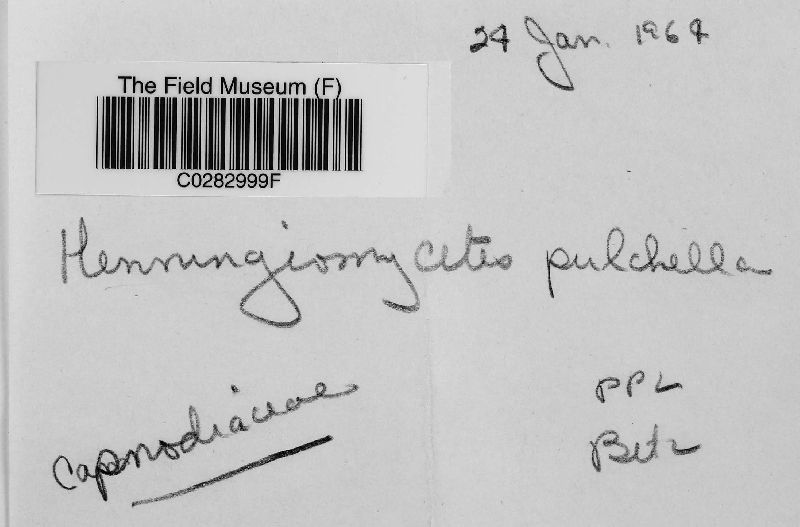 24 Jan. 1964
The Field Museum (F)
C0282999F
Henningiomycetes pulchella
Capnodiaceae
PPL
Betz